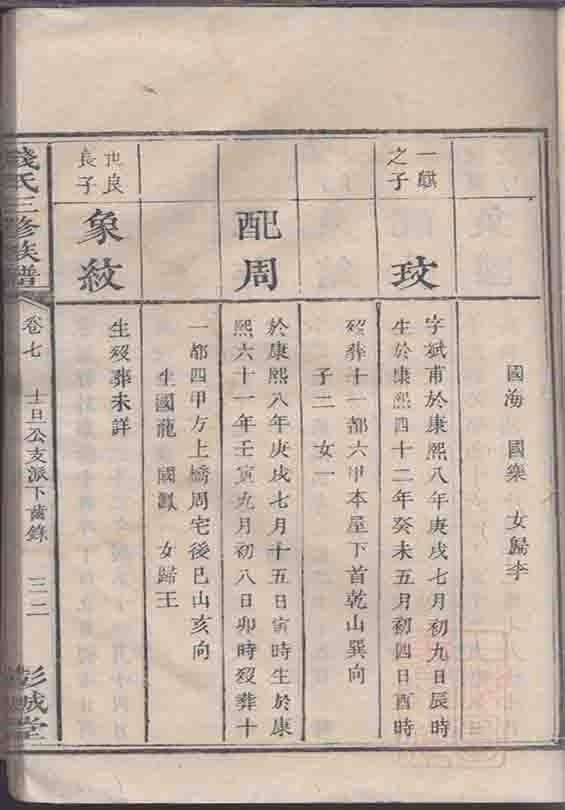 國海 國樂 女歸李
一麒
之子
玟
字斌甫於康熙八年庚戌七月初九日辰時
生於康熙四十二年癸未五月初四日酉時
歿葬十一都六甲本屋下首乾山巽向
子二 女一
配周
於康熙八年庚戌七月十五日寅時生於康
熙六十一年壬寅九月初八日卯時歿葬十
一都四甲方上橋周宅後巳山亥向
生國龍 國鳳 女歸王
世良
長子
象紋
生歿葬未詳
錢氏三修族譜
卷七
士旦公支派下齒錄
三二
彭城堂